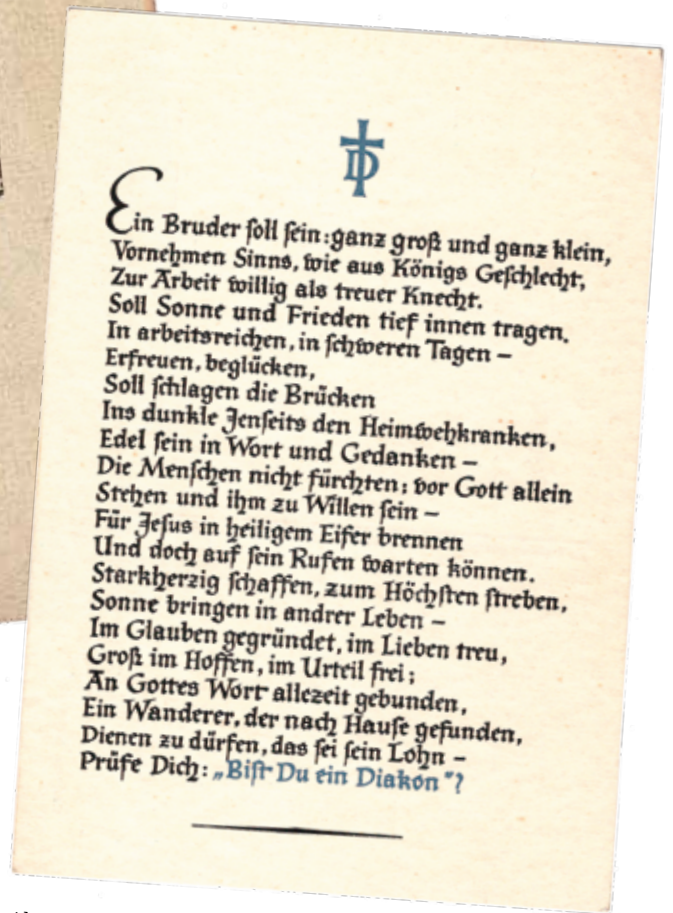 D
Ein Bruder soll sein: ganz groß und ganz klein,
Vornehmen Sinns, wie aus Königs Geschlecht,
Zur Arbeit willig als treuer Knecht.
Soll Sonne und Frieden tief innen tragen.
In arbeitsreichen, in schweren Tagen –
Erfreuen, beglücken,
Soll schlagen die Brücken
Ins dunkle Jenseits den Heimwehkranken,
Edel sein in Wort und Gedanken –
Die Menschen nicht fürchten; vor Gott allein
Stehen und ihm zu Willen sein –
Für Jesus in heiligem Eifer brennen
Und doch auf sein Rufen warten können.
Starkherzig schaffen, zum Höchsten streben,
Sonne bringen in andrer Leben –
Im Glauben gegründet, im Lieben treu,
Groß im Hoffen, im Urteil frei;
An Gottes Wort allezeit gebunden,
Ein Wanderer, der nach Hause gefunden,
Dienen zu dürfen, das sei sein Lohn –
Prüfe Dich: „Bist Du ein Diakon"?